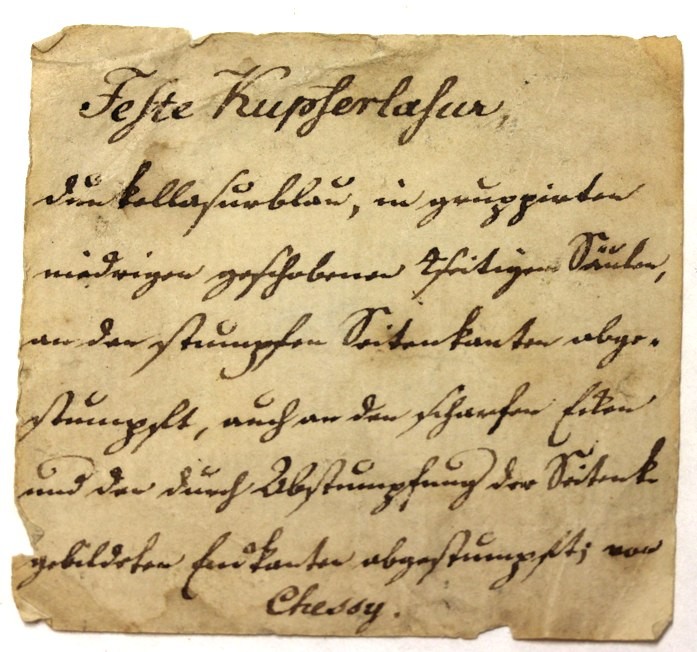 Feste Kupferlasur,
dunkellasurblau, in gruppirten
niedrigen geschobenen 4seitigen Säulen,
an den stumpfen Seitenkanten abge-
stumpft, auch an den scharfen Ecken
und den durch Abstumpfung der Seitenk.
gebildeten Endkanten abgestumpft; von
Chessy.